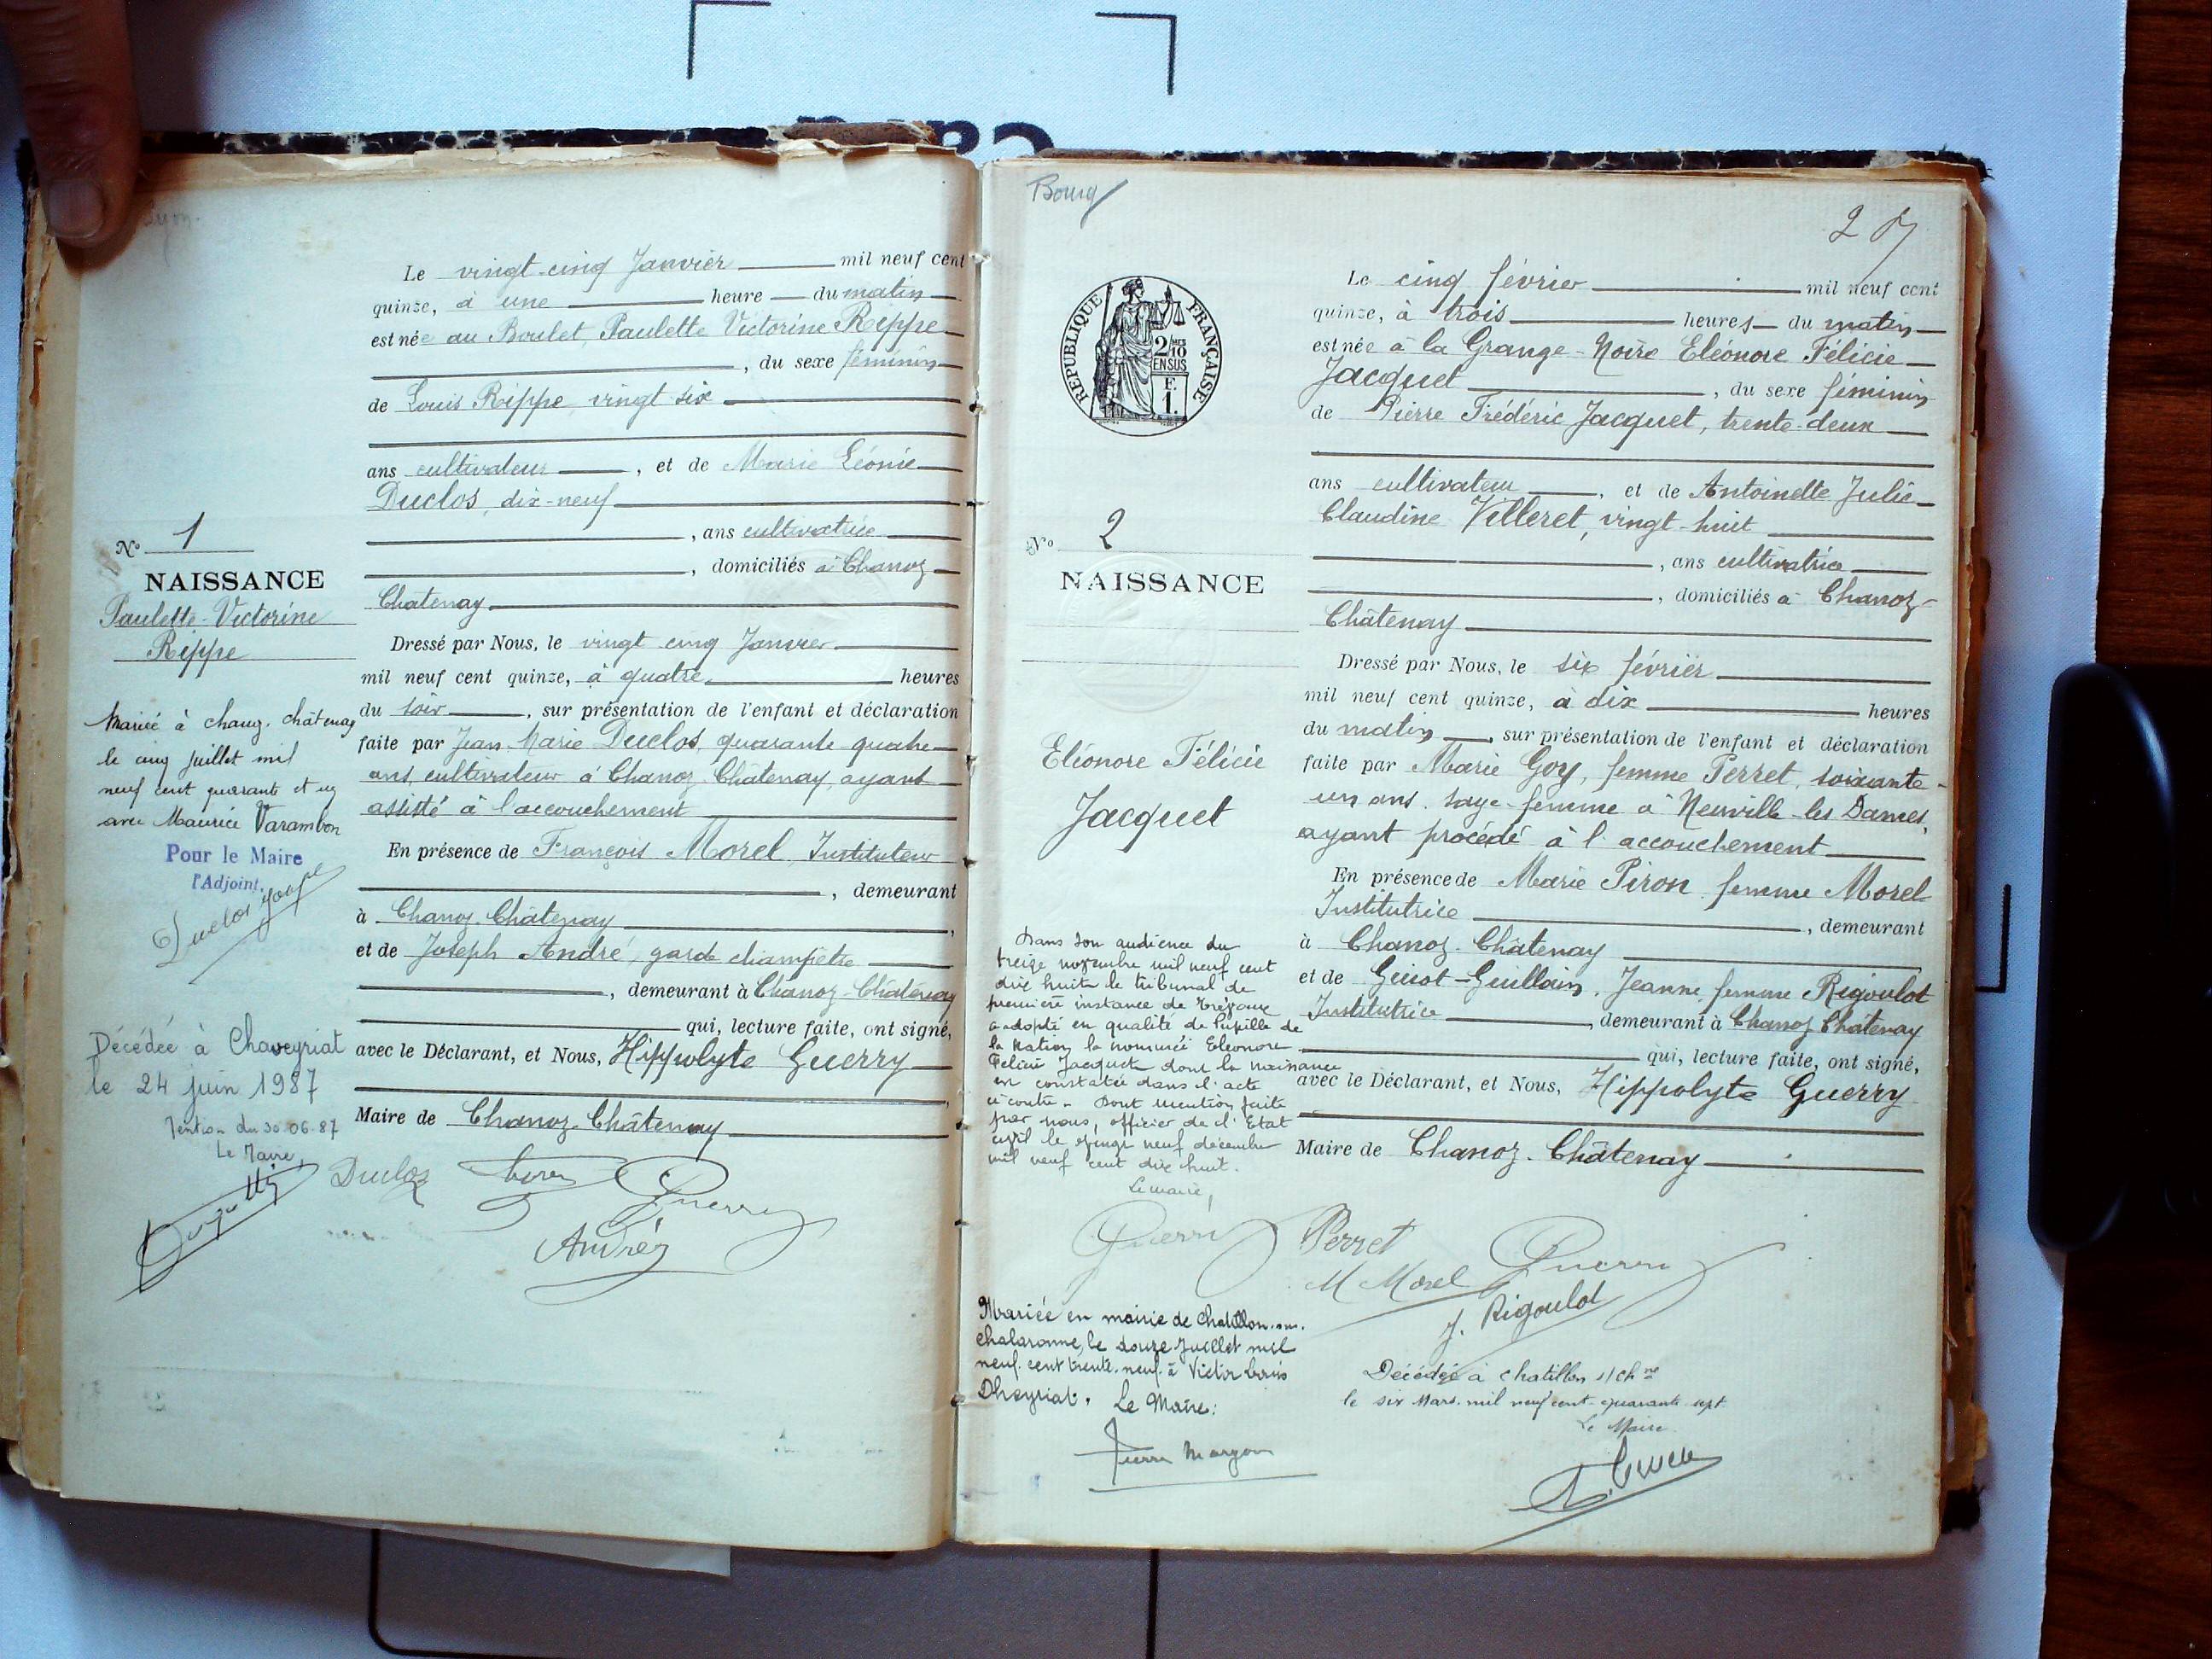 Le vingt-cinq Janvier mil neuf cent
quinze, à une heure du matin
est née au Boulet, Paulette Victorine Rippe
, du sexe féminin
de Louis Rippe, vingt six
ans cultivateur, et de Marie Léonie
Duclos, dix-neuf
, ans cultivatrice
, domiciliés à Chanoz
Châtenay
Dressé par Nous, le vingt cinq Janvier
mil neuf cent quinze, à quatre heures
du soir, sur présentation de l'enfant et déclaration
faite par Jean-Marie Duclos, quarante quatre
ans, cultivateur à Chanoz-Châtenay, ayant
assisté à l'accouchement
En présence de François Morel, Instituteur
, demeurant
à Chanoz-Châtenay,
et de Joseph André, garde champêtre
, demeurant à Chanoz-Châtenay
qui, lecture faite, ont signé,
avec le Déclarant, et Nous, Hippolyte Guerry
,
Maire de Chanoz-Châtenay
Duclos Morel Guerry
André
No 1
NAISSANCE
Paulette-Victorine
Rippe
Mariée à Chanoz-Châtenay
le cinq juillet mil
neuf cent quarante et un
avec Maurice Varambon
Pour le Maire
l'Adjoint,
Duclos
Décédée à Chaveyriat
le 24 juin 1987
Mention du 30.06.87
Le Maire,
Bourg
2
Le cinq février mil neuf cent
quinze, à trois heures du matin
est née à la Grange-Noire Eléonore Félicie
Jacquet, du sexe féminin
de Pierre Frédéric Jacquet, trente-deux
ans cultivateur, et de Antoinette Julie
Claudine Villeret, vingt-huit
, ans cultivatrice
, domiciliés à Chanoz-
Châtenay
Dressé par Nous, le six février
mil neuf cent quinze, à dix heures
du matin, sur présentation de l'enfant et déclaration
faite par Marie Goy, femme Perret, soixante-
un ans, sage-femme à Neuville-les-Dames,
ayant procédé à l'accouchement
En présence de Marie Piron, femme Morel
Institutrice, demeurant
à Chanoz-Châtenay
et de Guiot-Guillain, Jeanne, femme Rigoulot
Institutrice, demeurant à Chanoz Châtenay
qui, lecture faite, ont signé,
avec le Déclarant, et Nous, Hippolyte Guerry
Maire de Chanoz-Châtenay
Perret Guerry
M Morel
J. Rigoulot
RÉPUBLIQUE FRANÇAISE
2/10
EN SUS
F.
1.
No 2
NAISSANCE
Eléonore Félicie
Jacquet
Dans son audience du
treize novembre mil neuf cent
dix huit le tribunal de
première instance de Trévoux
a adopté en qualité de Pupille de
la Nation la nommée Eléonore
Félicie Jacquet dont la naissance
est constatée dans l'acte
ci-contre. Dont mention faite
par nous, officier de l'Etat
civil le vingt neuf décembre
mil neuf cent dix huit.
Le maire,
Guerry
Mariée en mairie de Chatillon-sur-
Chalaronne, le douze Juillet mil
neuf cent trente-neuf à Victor Louis
Dheyriat. Le Maire:
Décédée à Chatillon s/Chne
le six Mars mil neuf cent quarante sept
Le Maire